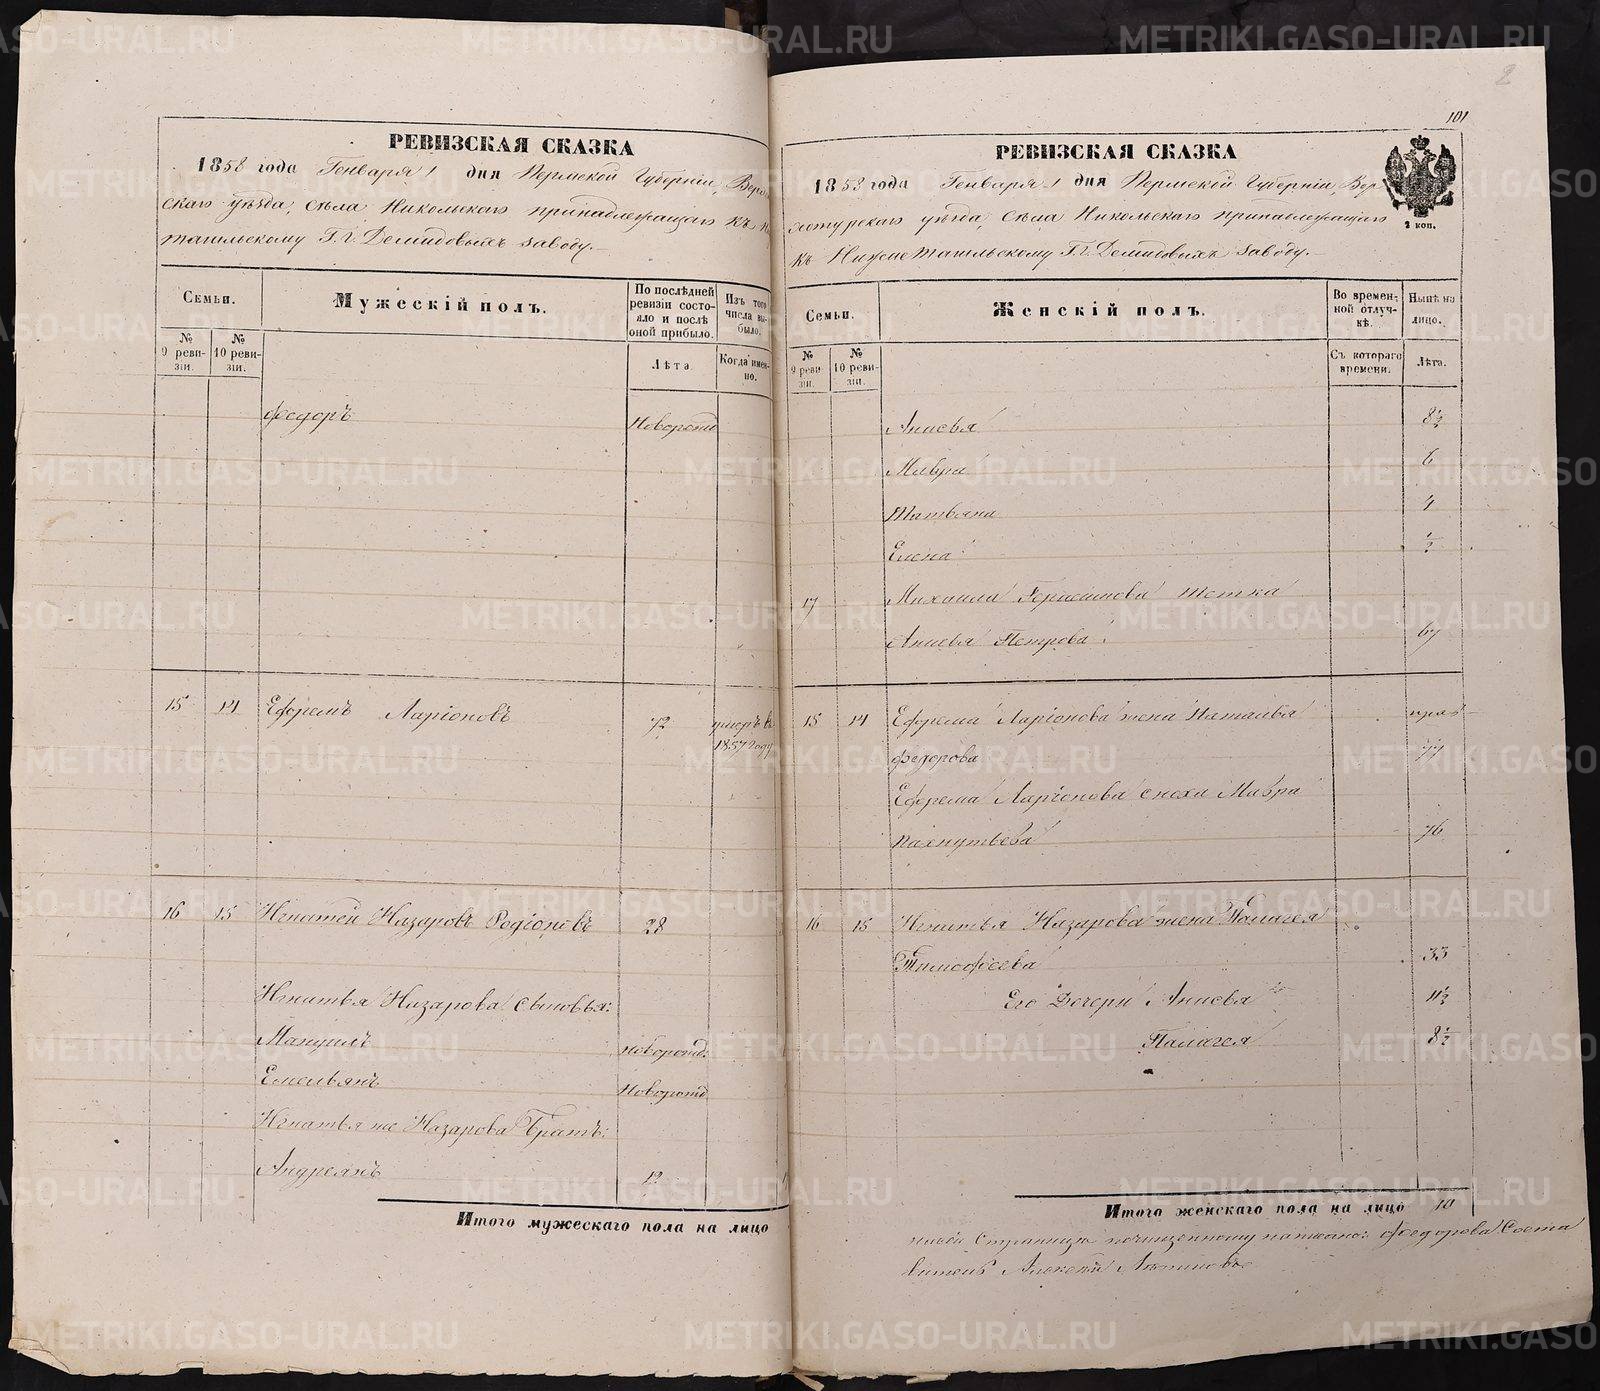 РЕВИЗСКАЯ СКАЗКА
1858 года Генваря 1 дня Пермской Губерніи, Верхо
скаго уѣзда, села Никольскаго принадлежащаго къ
тагильскому Г.г. Демидовыхъ заводу.
Семьи.
Мужескій полъ.
По послѣдней ревизіи состояло и послѣ оной прибыло.
Изъ того числа выбыло.
№ 9 ревизіи.
№ 10 ревизіи.
Лѣта
Когда именно.
Федоръ Новорожд
15 14 Ефремъ Ларіоновъ 72 умеръ въ
1857 году
16 15 Игнатей Назаровъ Родіоновъ 28
Игнатья Назарова сыновья:
Мануилъ новорожд.
Емельянъ Новорожд
Игнатья же Назарова Братъ:
Андреянъ 12
Итого мужескаго пола на лицо
2
101
РЕВИЗСКАЯ СКАЗКА
1858 года Генваря 1 дня Пермской Губерніи, Вер
хотурскаго уѣзда, села Никольскаго принадлежащаго
къ Нижнетагильскому Г.г. Демидовыхъ заводу.
2 коп.
Семьи.
Женскій полъ.
Во временной отлучкѣ.
Нынѣ на лицо.
№ 9 ревизіи.
№ 10 ревизіи.
Съ котораго времени.
Лѣта.
Анисья 8½
Мавра 6
Татьяна 4
Елена ½
17 Михаила Герасимова тетка
Анисья Петрова 67
15 14 Ефрема Ларіонова жена Наталья
Федорова 77
Ефрема Ларіонова сноха Мавра
Пахнутьева 76
16 15 Игнатья Назарова жена Палагея
Тимофеева 33
Его Дочери Анисья 11½
Палагея 8½
Итого женскаго пола на лицо 10
страницы почищенному написано: Федорова Соста
витель Алексѣй